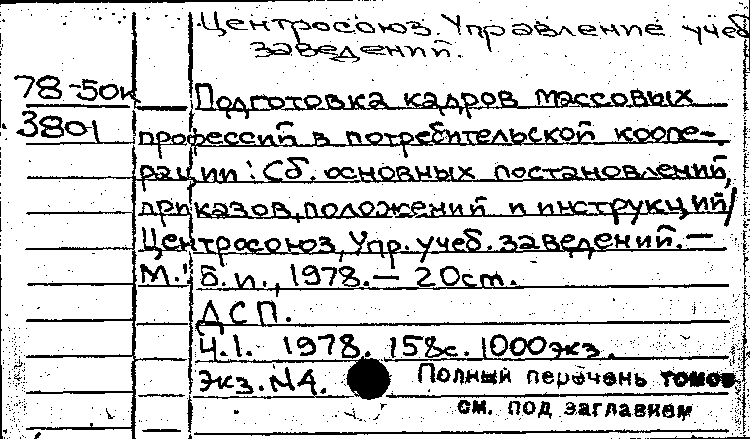 Центросоюз. Управление учеб.
заведений.
78-50к Подготовка кадров массовых
3801 профессий в потребительской коопе-
рации: Сб. основных постановлений,
приказов, положений и инструкций/
Центросоюз, Упр. учеб. заведений. —
М.: б. и., 1978. — 20см.
ДСП.
Ч.1. 1978. 158с. 1000экз.
Экз. N4. Полный перечень томов
см. под заглавием